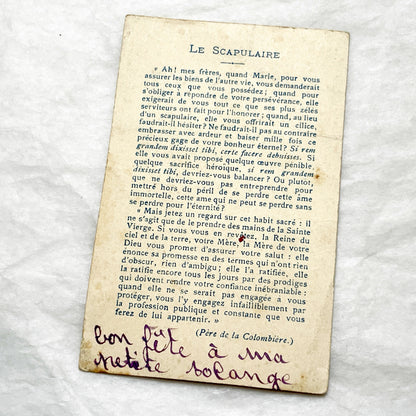 LE SCAPULAIRE
« Ah! mes frères, quand Marie, pour vous
assurer les biens de l'autre vie, vous demanderait
tous ceux que vous possédez; quand pour
s'obliger à répondre de votre persévérance, elle
exigerait de vous tout ce que ses plus zélés
serviteurs ont fait pour l'honorer; quand, au lieu
d'un scapulaire, elle vous offrirait un cilice,
faudrait-il hésiter? Ne faudrait-il pas au contraire
embrasser avec ardeur et baiser mille fois ce
précieux gage de votre bonheur éternel? Si rem
grandem dixisset tibi, certe facere debuisses. Si
elle vous avait proposé quelque œuvre pénible,
quelque sacrifice héroïque, si rem grandem
dixisset tibi, devriez-vous balancer? Ou plutôt,
que ne devriez-vous pas entreprendre pour
mettre hors du péril de se perdre cette âme
immortelle, cette âme qui ne peut se perdre sans
se perdre pour l'éternité?
« Mais jetez un regard sur cet habit sacré : il
ne s'agit que de le prendre des mains de la Sainte
Vierge. Si vous vous en revêtez, la Reine du
ciel et de la terre, votre Mère, la Mère de votre
Dieu vous promet d'assurer votre salut : elle
énonce sa promesse en des termes qui n'ont rien
d'obscur, rien d'ambigu; elle l'a ratifiée, elle
la ratifie encore tous les jours par des prodiges
qui doivent rendre votre confiance inébranlable :
quand elle ne se serait pas engagée à vous
protéger, vous l'y engagez infailliblement par
la profession publique et constante que vous
ferez de lui appartenir. »
(Père de la Colombière.)
bon fête à ma
petite solange